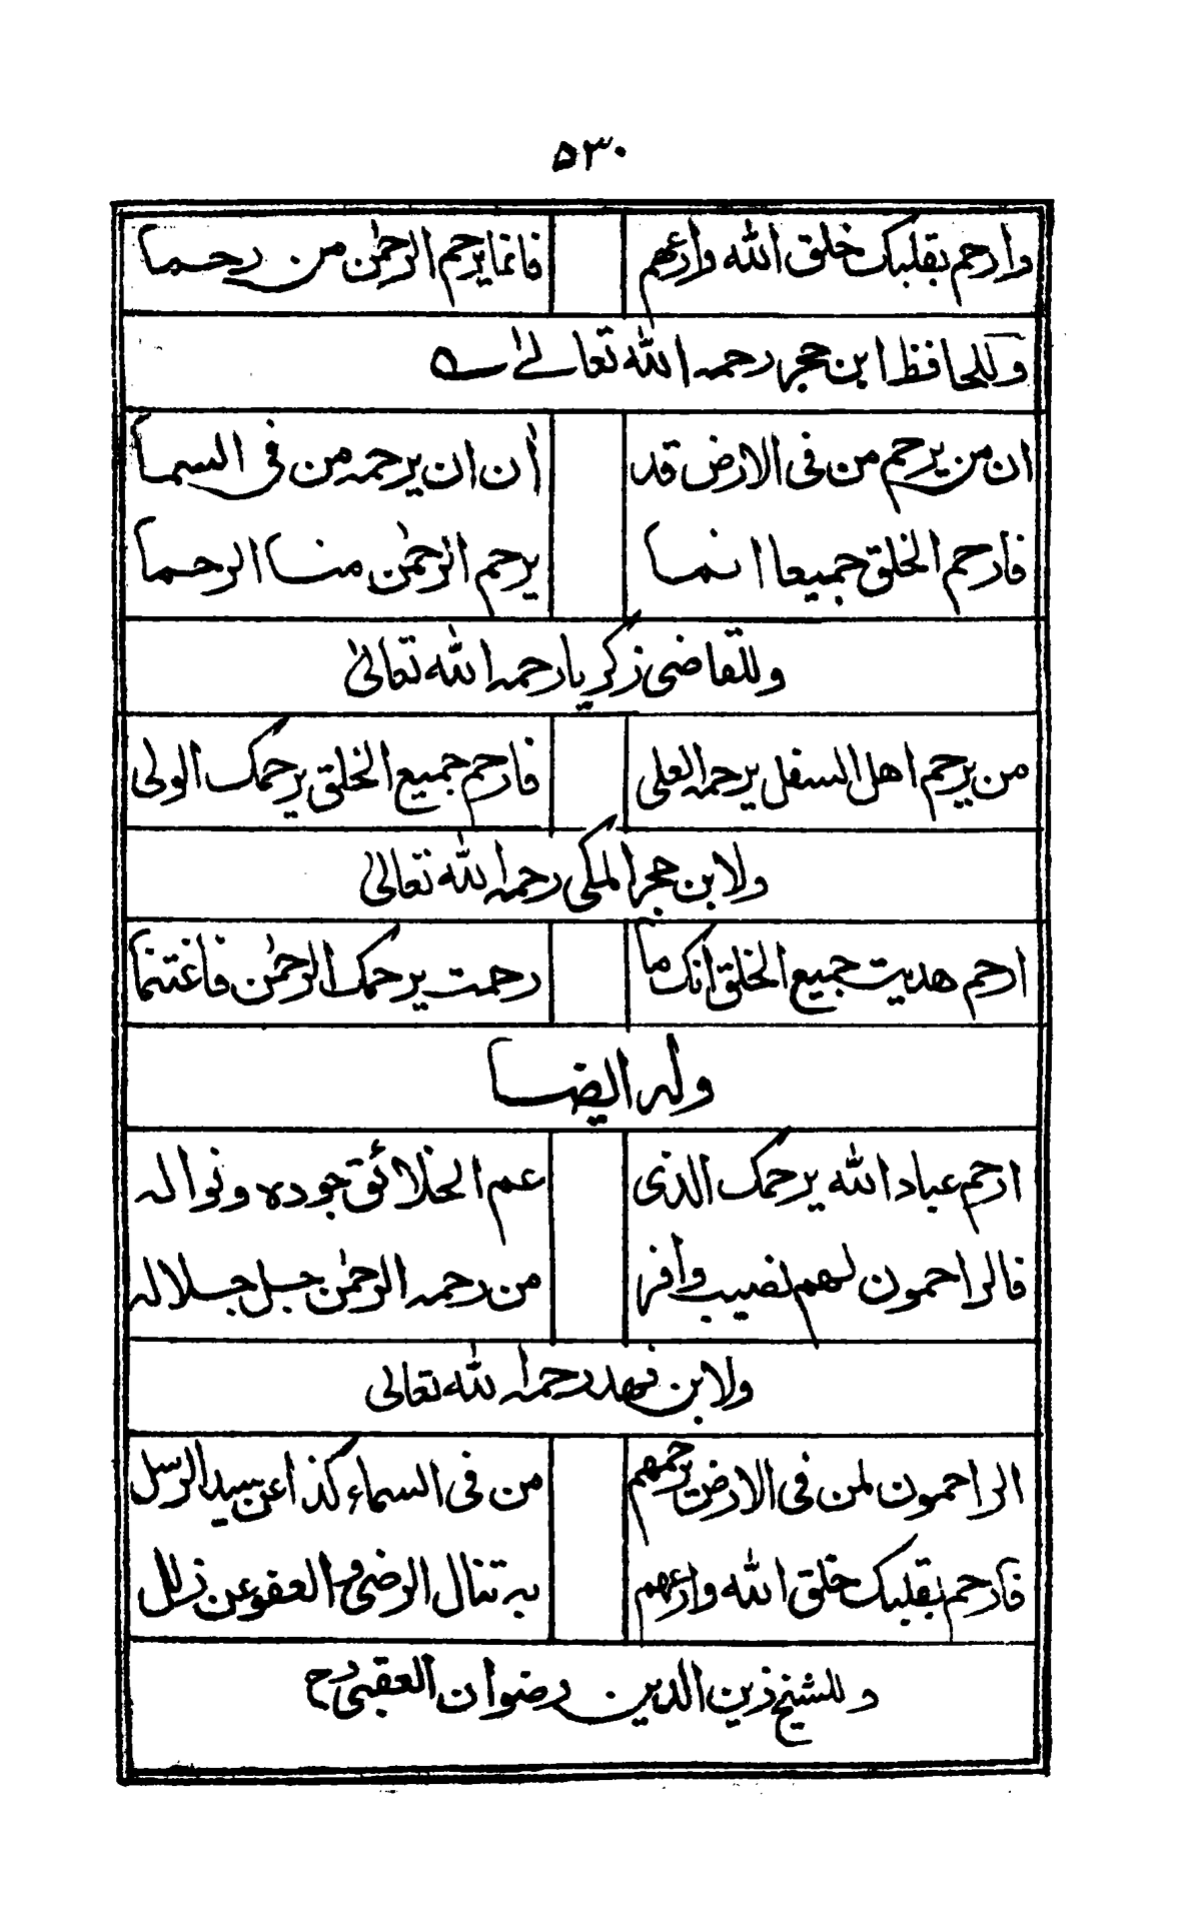 ٥٣٠
وارحم بقلبك خلق الله وارعهم فانما يرحم الرحمٰن من رحما
وللحافظ ابن حجر رحمه الله تعالےٰ ے
ان من يرحم من فى الارض قد أن ان يرحمه من فى السما
فارحم الخلق جميعا انما يرحم الرحمٰن منا الرحما
وللقاضى زكريا رحمه الله تعالىٰ
من يرحم اهل السفل يرحمه العلى فارحم جميع الخلق يرحمك الولى
ولابن حجر المكى رحمه الله تعالىٰ
ارحم هديت جميع الخلق انك ما رحمت يرحمك الرحمٰن فاغتنما
وله ايضا
ارحم عباد الله يرحمك الذى عم الخلائق جوده ونواله
فالراحمون لهم نصيب وافر من رحمه الرحمٰن جل جلاله
ولابن فهد رحمه الله تعالى
الراحمون لمن فى الارض يرحمهم من فى السماء كذا عن سيد الرسل
فارحم بقلبك خلق الله وارعهم به تنال الرضى والعفو عن زلل
وللشيخ زين الدين رضوان العقبى رح